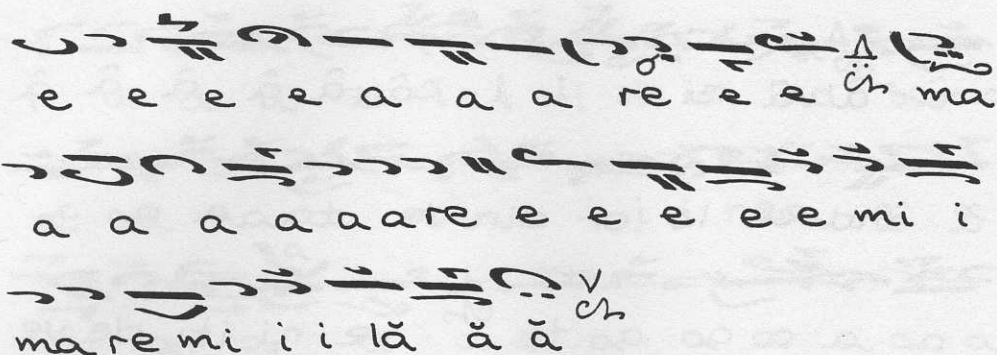 e e e e a a a re e e ma
a a a a a a re e e e e e mi i
ma re mi i i lă ă ă